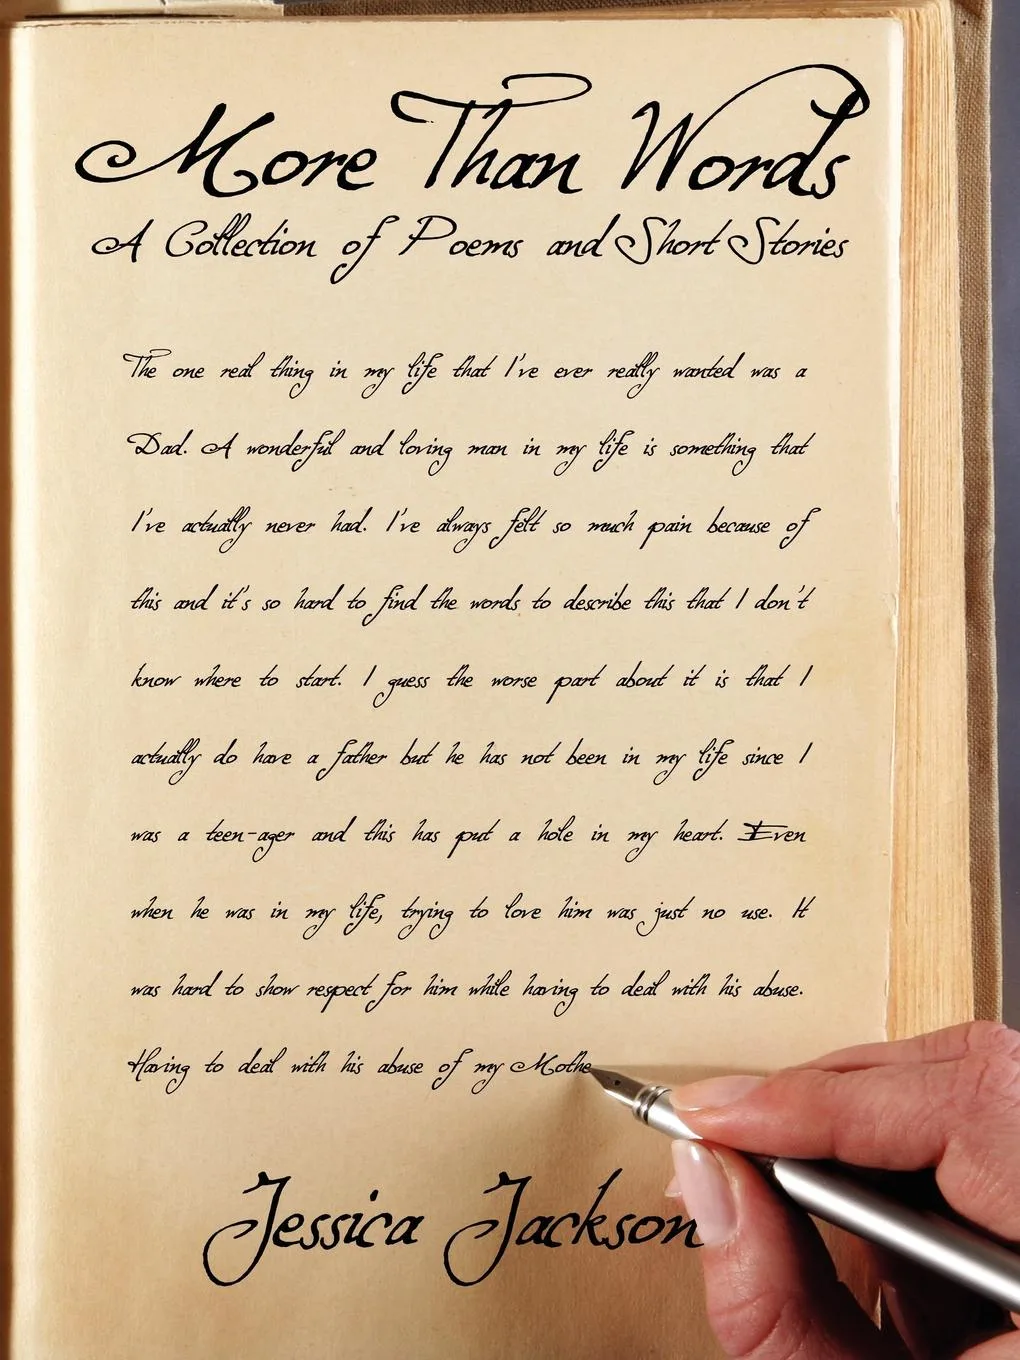 More Than Words
A Collection of Poems and Short Stories
The one real thing in my life that I've ever really wanted was a
Dad. A wonderful and loving man in my life is something that
I've actually never had. I've always felt so much pain because of
this and it's so hard to find the words to describe this that I don't
know where to start. I guess the worse part about it is that I
actually do have a father but he has not been in my life since I
was a teen-ager and this has put a hole in my heart. Even
when he was in my life, trying to love him was just no use. It
was hard to show respect for him while having to deal with his abuse.
Having to deal with his abuse of my Mothe
Jessica Jackson